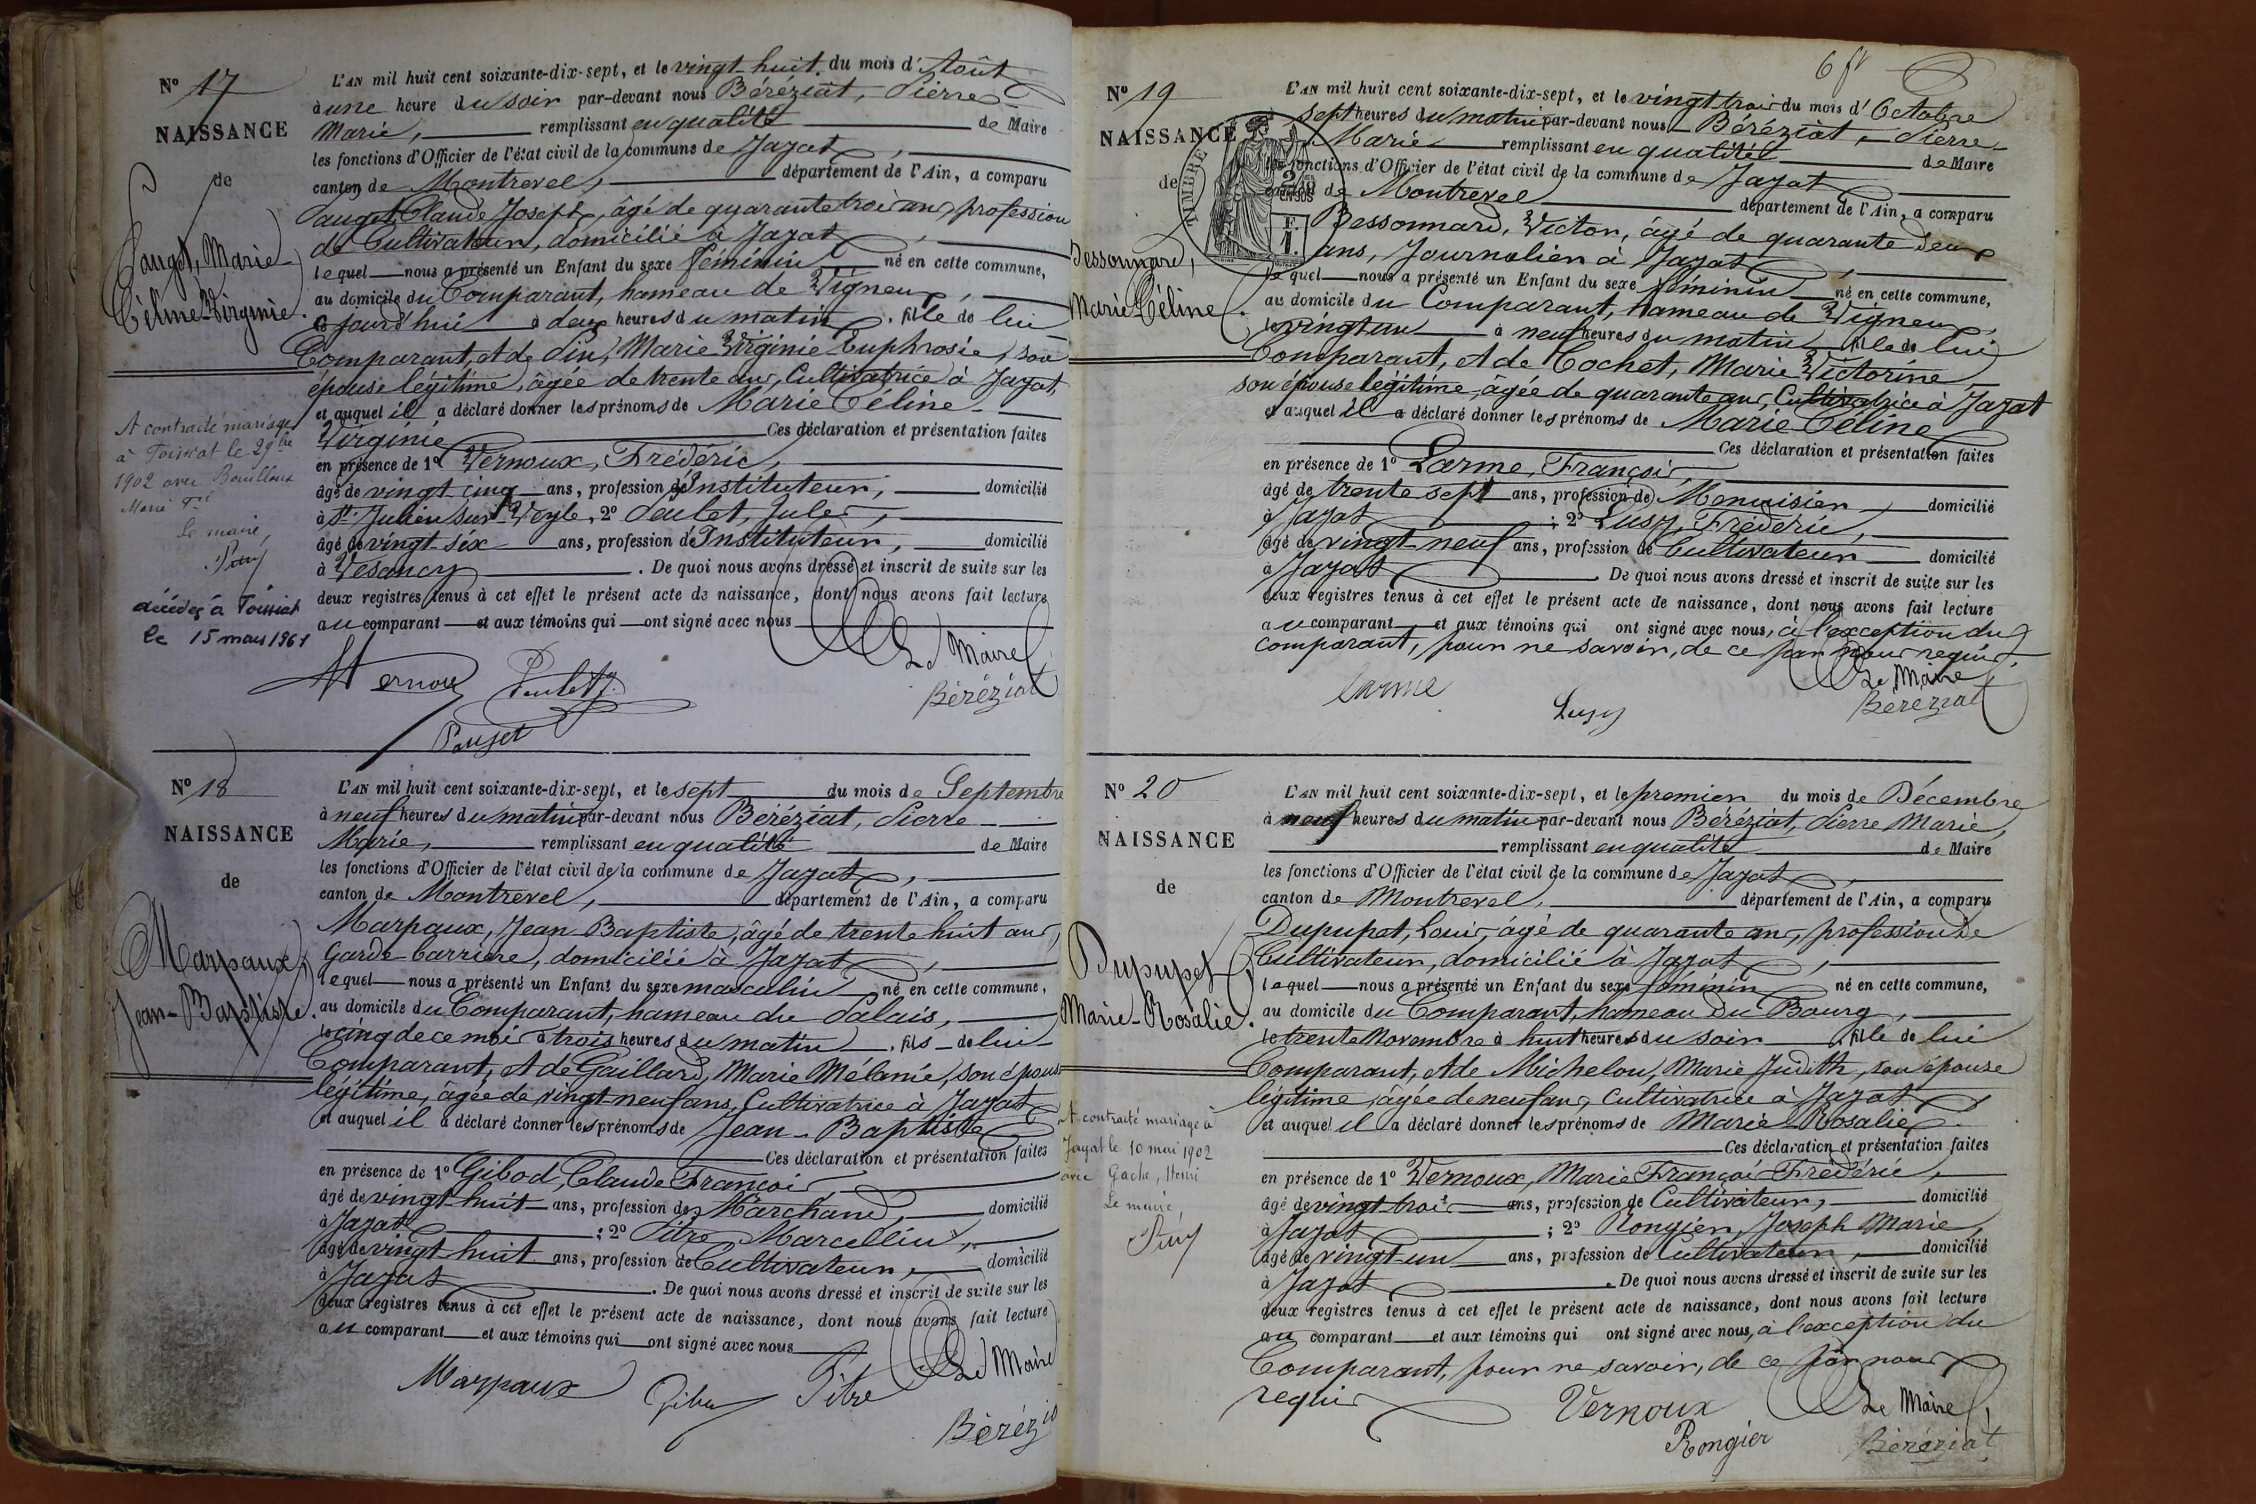 N° 17
NAISSANCE
de
Pauget, Marie-
Céline-Virginie.
A contracté mariage
à Foissiat le 29 9bre
1902 avec Bouilloux
Marie
Le maire,
Puy
décédée à Foissiat
le 15 mars 1961
L'AN mil huit cent soixante-dix-sept, et le vingt-huit du mois d'Août
à une heure du soir par-devant nous Béréziat, Pierre-
Marie, remplissant en qualité de Maire
les fonctions d'Officier de l'état civil de la commune de Jayat,
canton de Montrevel, département de l'Ain, a comparu
Pauget, Claude Joseph, âgé de quarante trois ans, profession
de Cultivateur, domicilié à Jayat,
lequel nous a présenté un Enfant du sexe féminin né en cette commune,
au domicile du Comparant, hameau de Vigneux,
ce jourd'hui à deux heures du matin, fille de lui
Comparant, et de Pin, Marie Virginie Euphrosie, son
épouse légitime, âgée de trente ans, Cultivatrice à Jayat,
et auquel il a déclaré donner les prénoms de Marie Céline-
Virginie Ces déclaration et présentation faites
en présence de 1° Vernoux, Frédéric,
âgé de vingt cinq ans, profession d'Instituteur, domicilié
à St. Julien sur Veyle, 2° Peulet, Jules,
âgé de vingt-six ans, profession d'Instituteur, domicilié
à Vesancy. De quoi nous avons dressé et inscrit de suite sur les
deux registres tenus à cet effet le présent acte de naissance, dont nous avons fait lecture
au comparant et aux témoins qui ont signé avec nous
Le Maire
Vernoux Peulet J. Béréziat
Pauget
N° 18
NAISSANCE
de
Marpaux,
Jean-Baptiste.
L'AN mil huit cent soixante-dix-sept, et le sept du mois de Septembre
à neuf heures du matin par-devant nous Béréziat, Pierre-
Marie, remplissant en qualité de Maire
les fonctions d'Officier de l'état civil de la commune de Jayat,
canton de Montrevel, département de l'Ain, a comparu
Marpaux, Jean Baptiste, âgé de trente huit ans,
Garde-barrière, domicilié à Jayat,
lequel nous a présenté un Enfant du sexe masculin né en cette commune,
au domicile du Comparant, hameau du Palais,
le cinq de ce mois à trois heures du matin, fils de lui
Comparant, et de Gaillard, Marie Mélanie, son épouse
légitime, âgée de vingt-neuf ans, Cultivatrice à Jayat
et auquel il a déclaré donner les prénoms de Jean-Baptiste
Ces déclaration et présentation faites
en présence de 1° Gibod, Claude François,
âgé de vingt-huit ans, profession de Marchand, domicilié
à Jayat; 2° Pitre Marcellin,
âgé de vingt-huit ans, profession de Cultivateur, domicilié
à Jayat. De quoi nous avons dressé et inscrit de suite sur les
deux registres tenus à cet effet le présent acte de naissance, dont nous avons fait lecture
au comparant et aux témoins qui ont signé avec nous
Le Maire
Marpaux Gibod Pitre
Béréziat
6 fr
N° 19
NAISSANCE
de
Bessonnard,
Marie Céline.
TIMBRE
L'AN mil huit cent soixante-dix-sept, et le vingt trois du mois d'Octobre
à sept heures du matin par-devant nous Béréziat, Pierre-
Marie remplissant en qualité de Maire
les fonctions d'Officier de l'état civil de la commune de Jayat
canton de Montrevel département de l'Ain, a comparu
Bessonnard, Victor, âgé de quarante deux
ans, Journalier à Jayat,
lequel nous a présenté un Enfant du sexe féminin né en cette commune,
au domicile du Comparant, hameau de Vigneux,
le vingt un à neuf heures du matin fille de lui
Comparant, et de Cochet, Marie Victorine
son épouse légitime, âgée de quarante ans, Cultivatrice à Jayat
et auquel il a déclaré donner les prénoms de Marie Céline
Ces déclaration et présentation faites
en présence de 1° Larme, François,
âgé de trente sept ans, profession de Menuisier, domicilié
à Jayat; 2° Lusy, Frédéric,
âgé de vingt-neuf ans, profession de Cultivateur domicilié
à Jayat. De quoi nous avons dressé et inscrit de suite sur les
deux registres tenus à cet effet le présent acte de naissance, dont nous avons fait lecture
au comparant et aux témoins qui ont signé avec nous, à l'exception du
comparant, pour ne savoir, de ce par nous requis.
Le Maire
Larme Lusy Béréziat
N° 20
NAISSANCE
de
Dupupet,
Marie-Rosalie.
A contracté mariage à
Jayat le 10 mai 1902
avec Gache, Henri
Le maire,
Puy
L'AN mil huit cent soixante-dix-sept, et le premier du mois de Décembre
à neuf heures du matin par-devant nous Béréziat, Pierre Marie,
remplissant en qualité de Maire
les fonctions d'Officier de l'état civil de la commune de Jayat,
canton de Montrevel, département de l'Ain, a comparu
Dupupet, Louis, âgé de quarante ans, profession de
Cultivateur, domicilié à Jayat,
lequel nous a présenté un Enfant du sexe féminin né en cette commune,
au domicile du Comparant, hameau du Bourg,
le trente Novembre à huit heures du soir, fille de lui
Comparant, et de Michelon, Marie Judith, son épouse
légitime, âgée de neuf ans, Cultivatrice à Jayat
et auquel il a déclaré donner les prénoms de Marie-Rosalie
Ces déclaration et présentation faites
en présence de 1° Vernoux, Marie François Frédéric,
âgé de vingt-trois ans, profession de Cultivateur, domicilié
à Jayat; 2° Rongier, Joseph Marie,
âgé de vingt-un ans, profession de Cultivateur, domicilié
à Jayat. De quoi nous avons dressé et inscrit de suite sur les
deux registres tenus à cet effet le présent acte de naissance, dont nous avons fait lecture
au comparant et aux témoins qui ont signé avec nous, à l'exception du
Comparant, pour ne savoir, de ce par nous
requis
Vernoux Le Maire
Rongier Béréziat